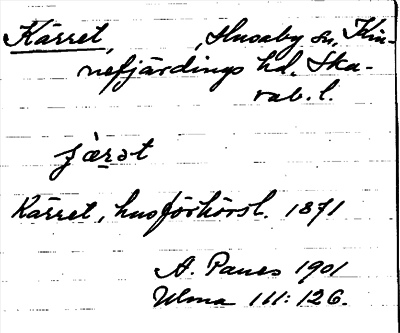 Kärret, , Husaby sn, Kin-
nefjärdings hd. Ska-
rab. l.
Kärret, husförhörsl. 1871
A. Panes 1901
Ulma 111: 126.